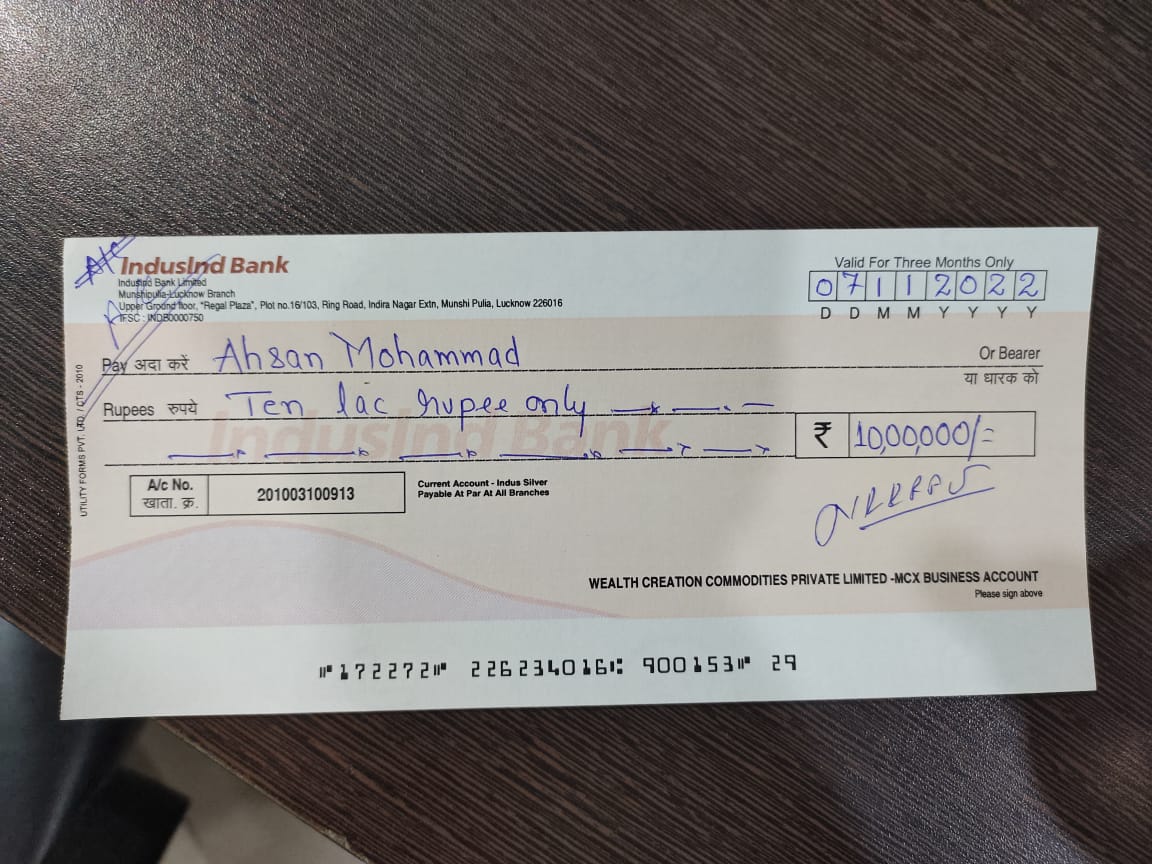 A/c
IndusInd Bank
IndusInd Bank Limited
Munshipulia-Lucknow Branch
Upper Ground floor, "Regal Plaza", Plot no.16/103, Ring Road, Indira Nagar Extn, Munshi Pulia, Lucknow 226016
IFSC : INDB0000750
Valid For Three Months Only
07112022
D D M M Y Y Y Y
Pay अदा करें Ahsan Mohammad
Or Bearer
या धारक को
Rupees रुपये Ten lac rupee only
₹ 10,00,000/=
IndusInd Bank
A/c No.
खाता. क्र.
201003100913
Current Account - Indus Silver
Payable At Par At All Branches
WEALTH CREATION COMMODITIES PRIVATE LIMITED -MCX BUSINESS ACCOUNT
Please sign above
UTILITY FORMS PVT. LTD. / CTS - 2010
⑈172272⑈ 226234016⑆ 900153⑈ 29